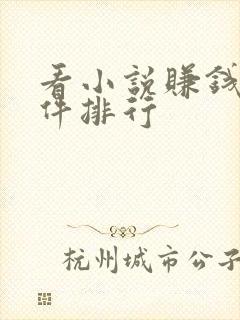 看小説賺錢
件排行
杭州城市公子